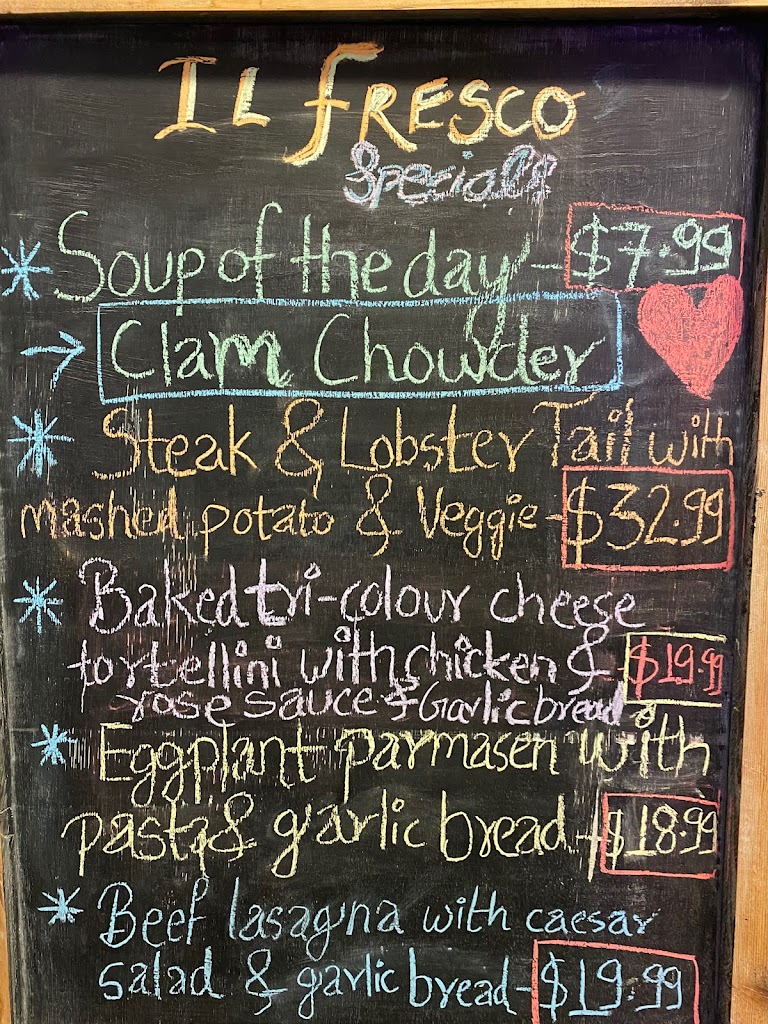 IL FRESCO
Specials
* Soup of the day - $7.99
→ Clam Chowder
* Steak & Lobster Tail with
mashed potato & Veggie - $32.99
* Baked tri-colour cheese
tortellini with chicken & - $19.99
rose sauce & Garlic bread
* Eggplant parmasen with
pasta & garlic bread - $18.99
* Beef lasagna with caesar
salad & garlic bread - $19.99